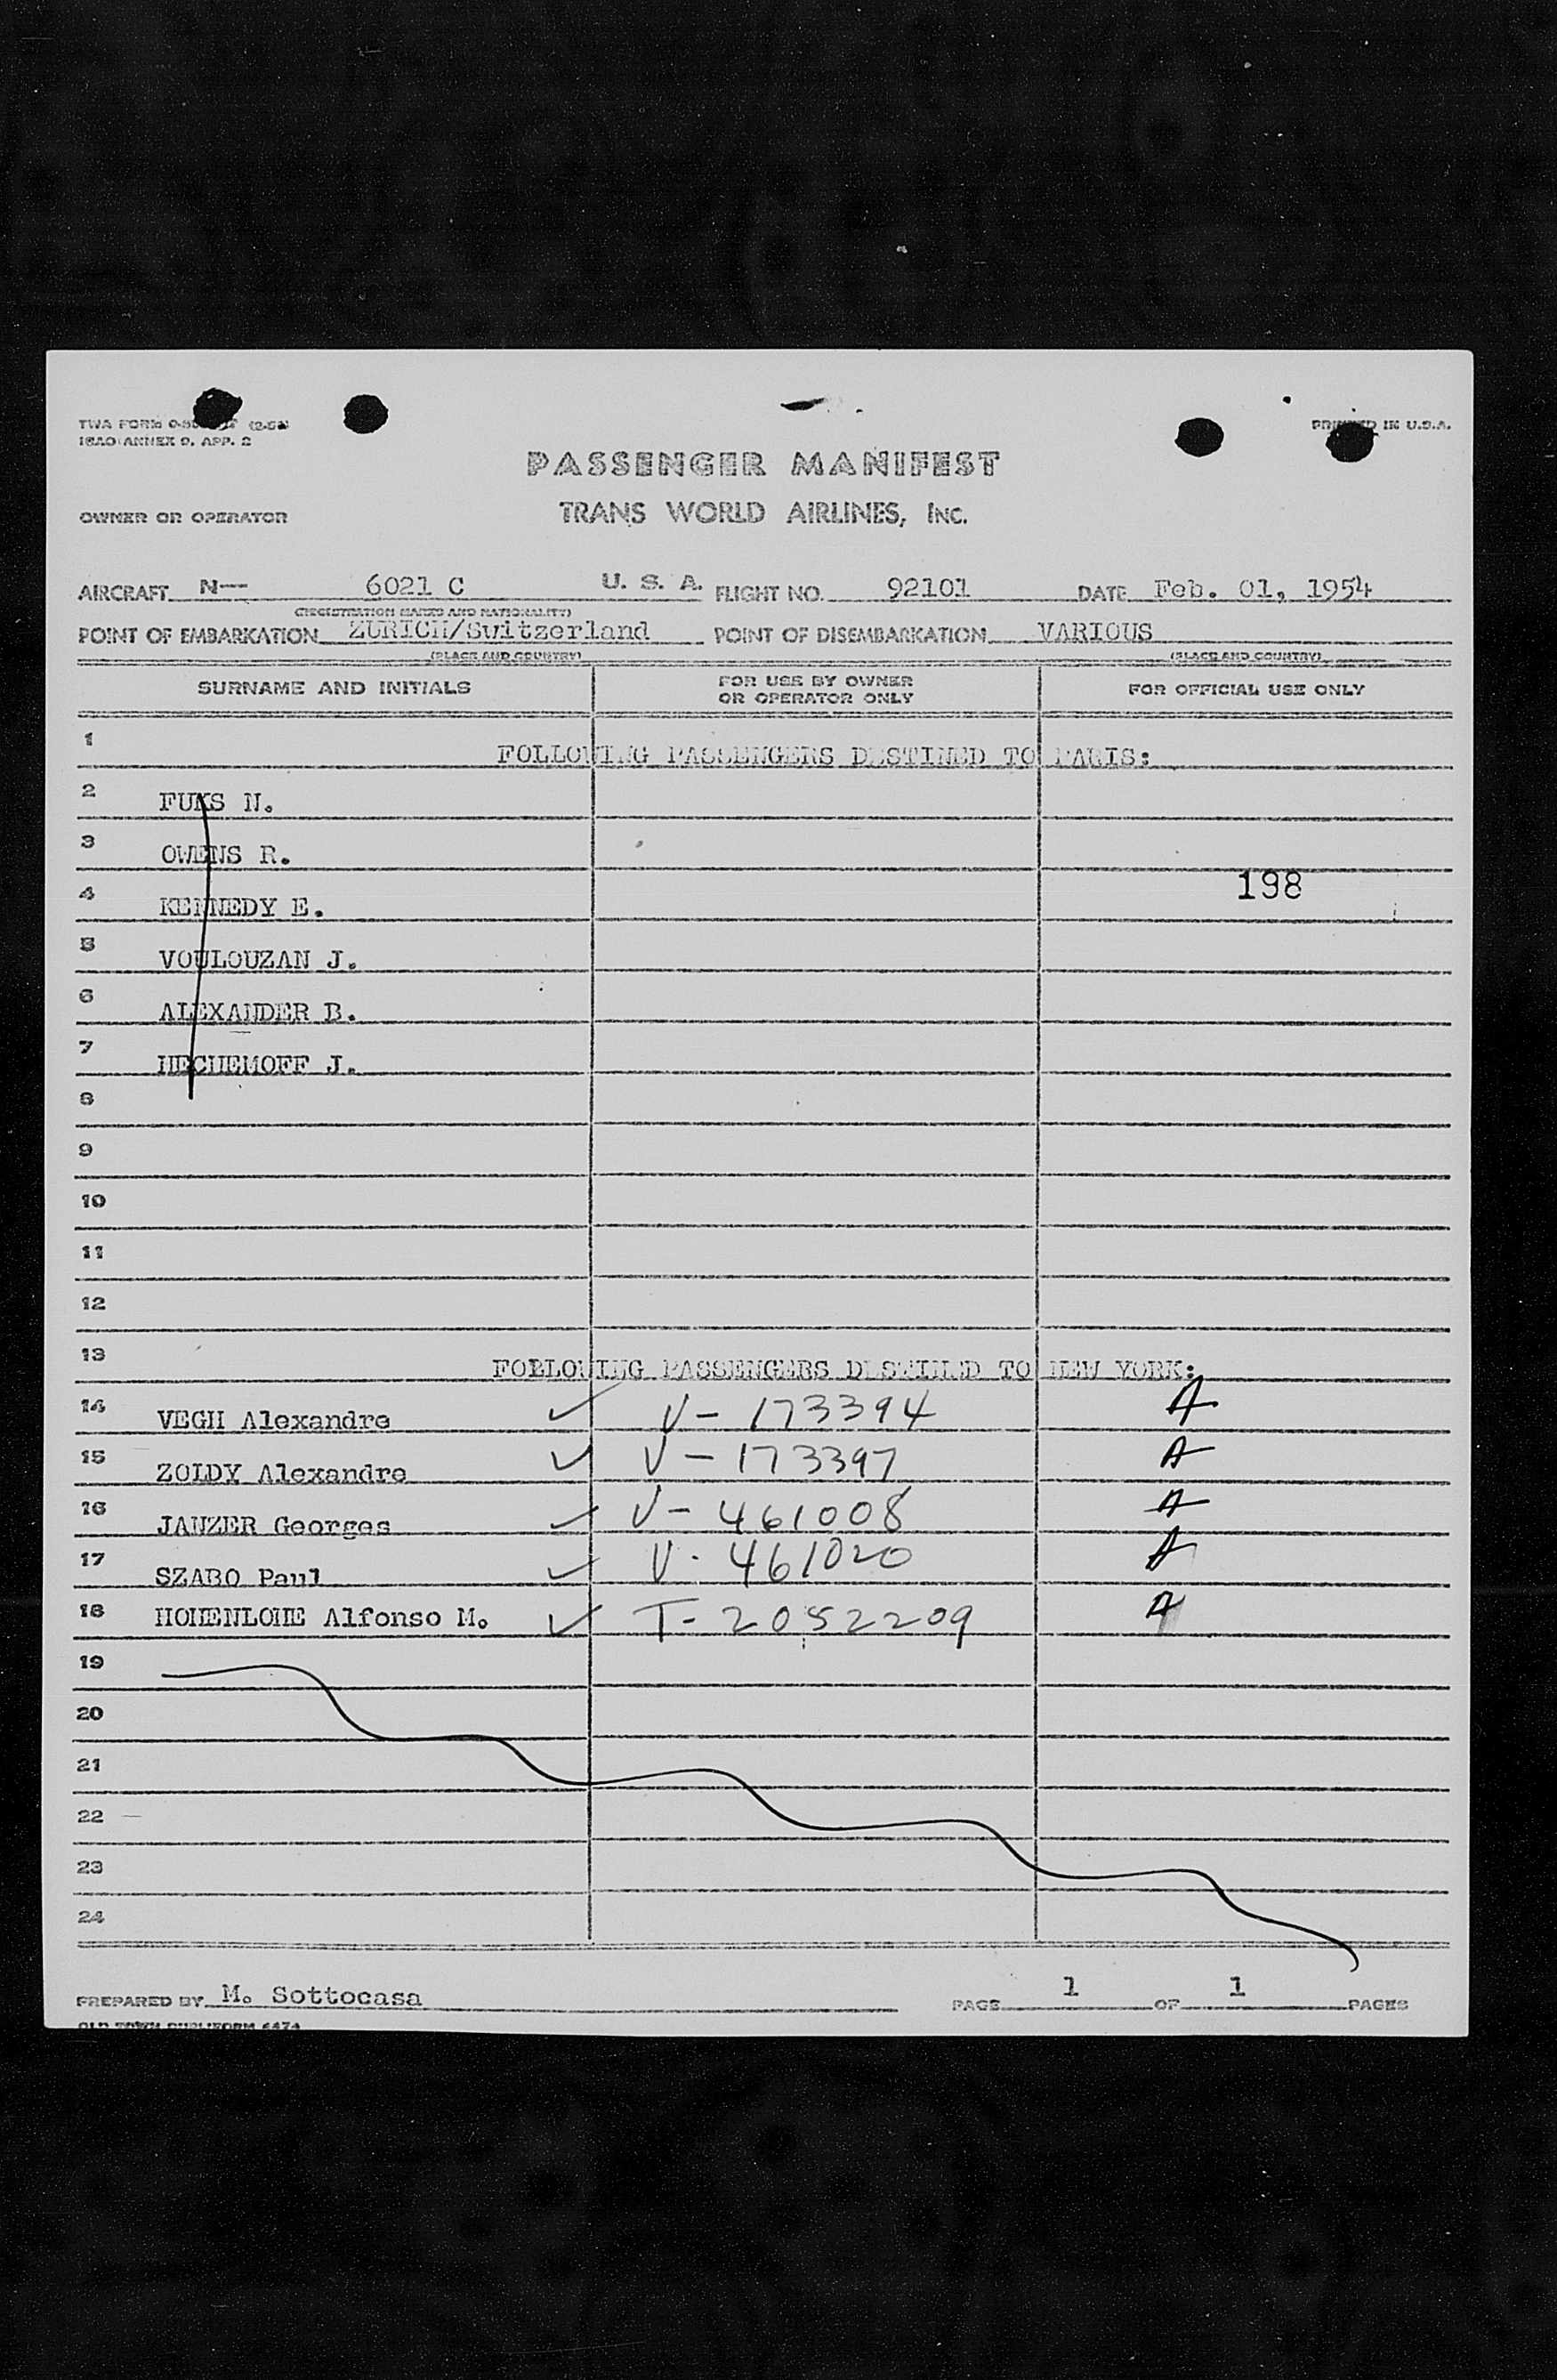 TWA FORM
ICAO ANNEX 9, APP. 2
PRINTED IN U.S.A.
PASSENGER MANIFEST
OWNER OR OPERATOR TRANS WORLD AIRLINES, INC.
AIRCRAFT N— 6021 C U. S. A. FLIGHT NO. 92101 DATE Feb. 01, 1954
(REGISTRATION MARKS AND NATIONALITY)
POINT OF EMBARKATION ZURICH/Switzerland POINT OF DISEMBARKATION VARIOUS
(PLACE AND COUNTRY) (PLACE AND COUNTRY)
SURNAME AND INITIALS FOR USE BY OWNER OR OPERATOR ONLY FOR OFFICIAL USE ONLY
1 FOLLOWING PASSENGERS DESTINED TO PARIS:
2 FUKS N.
3 OWENS R.
4 KENNEDY E. 198
5 VOULOUZAN J.
6 ALEXANDER B.
7 J.
8
9
10
11
12
13 FOLLOWING PASSENGERS DESTINED TO NEW YORK:
14 VEGH Alexandre ✓ V - 173394 A
15 ZOLDY Alexandre ✓ V - 173397 A
16 JAUZER Georges ✓ V - 461008 A
17 SZABO Paul ✓ V - 461020 A
18 HOHENLOHE Alfonso M. ✓ T - 2052209 A
19
20
21
22
23
24
PREPARED BY M. Sottocasa PAGE 1 OF 1 PAGES